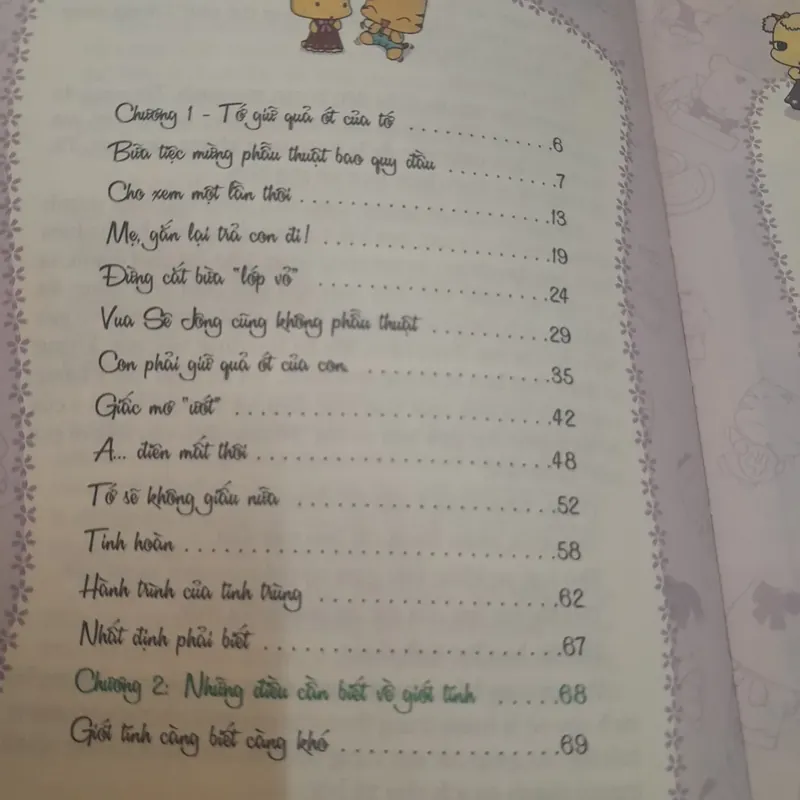 Chương 1 - Tớ giữ quả ớt của tớ ............. 6
Bữa tiệc mừng phẫu thuật bao quy đầu .........7
Cho xem một lần thôi .....................13
Mẹ, gắn lại trả con đi! ...................19
Đừng cắt bừa "lớp vỏ" ...................24
Vua Sê Jông cũng không phẫu thuật .........29
Con phải giữ quả ớt của con. ...............35
Giấc mơ "ướt" .........................42
A... điên mất thôi ........................48
Tớ sẽ không giấu nữa ....................52
Tinh hoàn ..............................58
Hành trình của tinh trùng ..................62
Nhất định phải biết ......................67
Chương 2: Những điều cần biết về giới tính .....68
Giới tính càng biết càng khó ................69